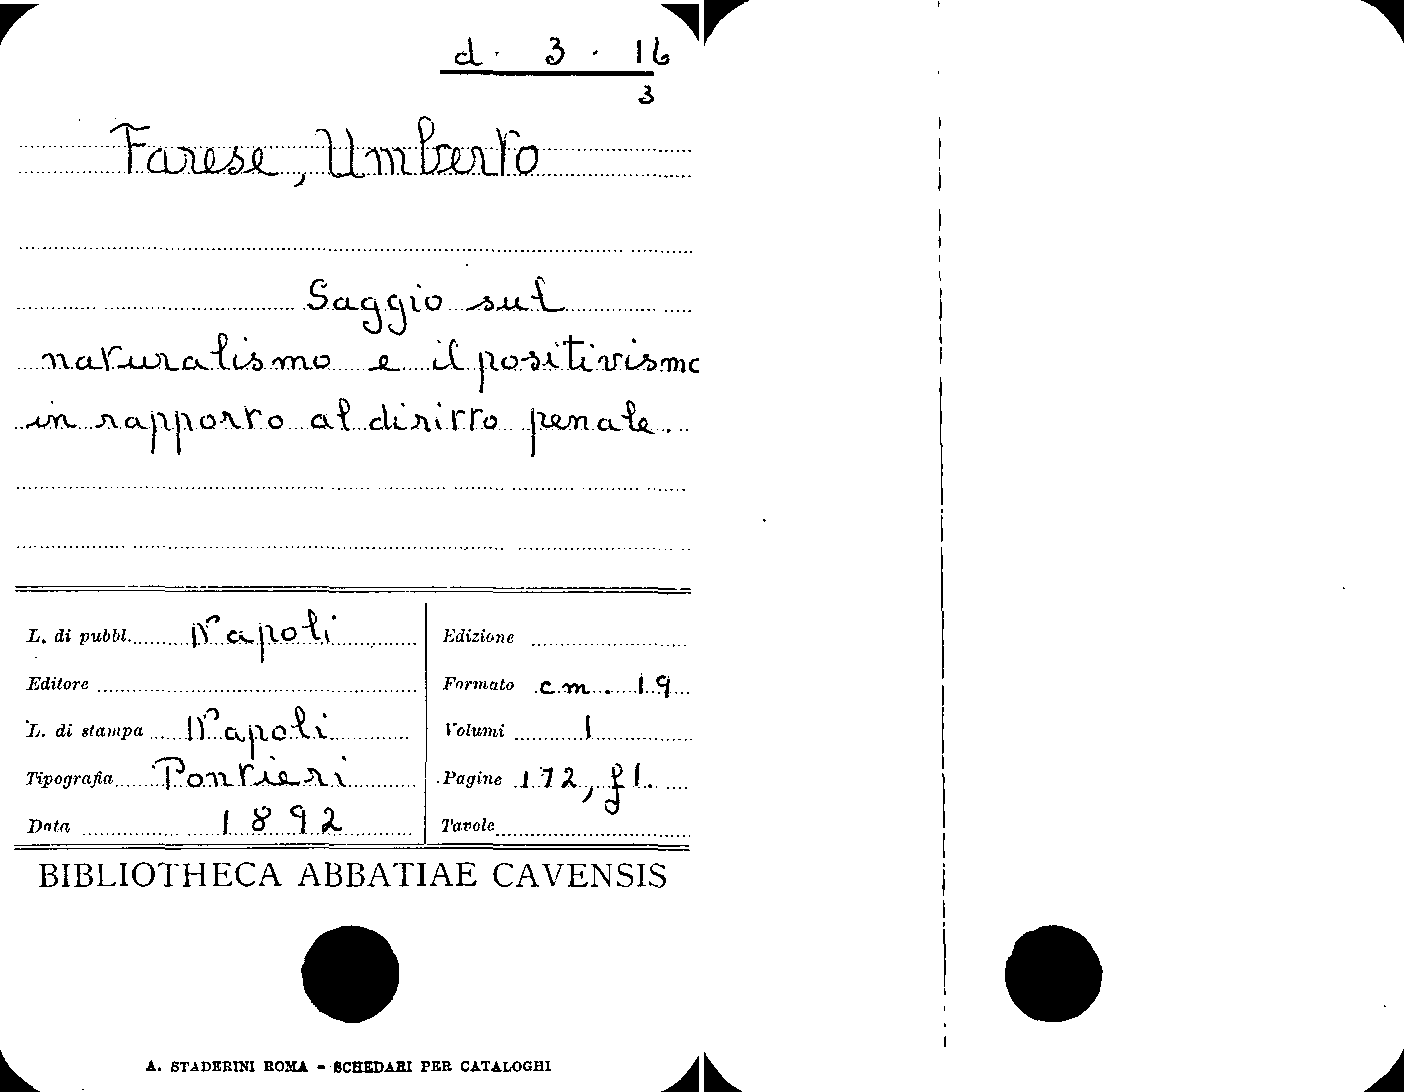 d. 3. 16
3
Farese, Umberto
Saggio sul
naturalismo e il positivismo
in rapporto al diritto penale.
L. di pubbl. Napoli
Editore
L. di stampa Napoli
Tipografia Pontieri
Data 1892
Edizione
Formato cm. 19
Volumi 1
Pagine 172, f1.
Tavole
BIBLIOTHECA ABBATIAE CAVENSIS
A. STADERINI ROMA - SCHEDARI PER CATALOGHI